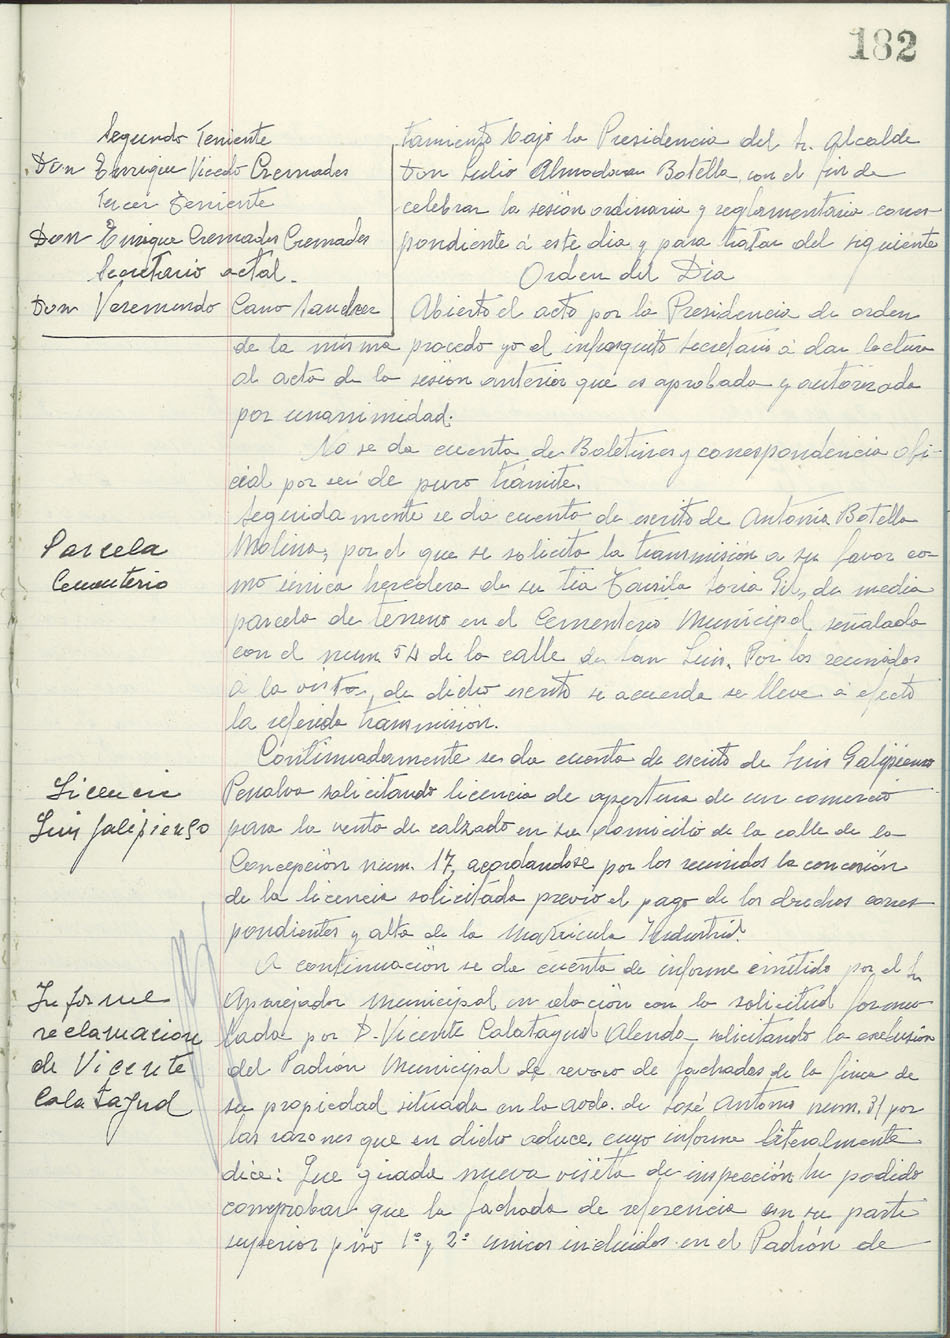 182
Segundo Teniente
Don Enrique Vicedo Cremades
Tercer Teniente
Don Enrique Cremades Cremades
Secretario actal.
Don Veremundo Cano Sanchez
tamiento bajo la Presidencia del Sr. Alcalde
Don Julio Almodovar Botella, con el fin de
celebrar la sesión ordinaria y reglamentaria corres-
pondiente á este dia y para tratar del siguiente
Orden del Dia
Abierto el acto por la Presidencia de orden
de la misma procedo yo el infrascrito Secretario á dar lectura
al acta de la sesión anterior que es aprobada y autorizada
por unanimidad.
No se da cuenta de Boletines y correspondencia ofi-
cial por ser de puro trámite.
Seguidamente se da cuenta de escrito de Antonia Botella
Molina, por el que se solicita la transmisión a su favor co-
mo única heredera de su tia Tarsila Soria Gil, de media
parcela de terreno en el Cementerio Municipal señalada
con el num. 54 de la calle de San Luis. Por los reunidos
á la vista, de dicho escrito se acuerda se lleve á efecto
la referida transmisión.
Parcela
Cementerio
Continuadamente se da cuenta de escrito de Luis Galipienso
Penalva solicitando licencia de apertura de un comercio
para la venta de calzado en su domicilio de la calle de la
Concepción num. 17, acordandose por los reunidos la concesión
de la licencia solicitada previo el pago de los derechos corres-
pondientes y alta de la Matricula Industrial.
Licencia
Luis Galipienso
A continuación se da cuenta de informe emitido por el Sr.
Aparejador Municipal en relación con la solicitud formu-
lada por D. Vicente Calatayud Alenda, solicitando la exclusión
del Padrón Municipal de revoco de fachadas de la finca de
su propiedad situada en la avda. de José Antonio num. 31 por
las razones que en dicho aduce, cuyo informe literalmente
dice: Que girada nueva visita de inspección he podido
comprobar que la fachada de referencia en su parte
superior piso 1º y 2º unicos incluidos en el Padrón de
Informe
reclamacion
de Vicente
Calatayud